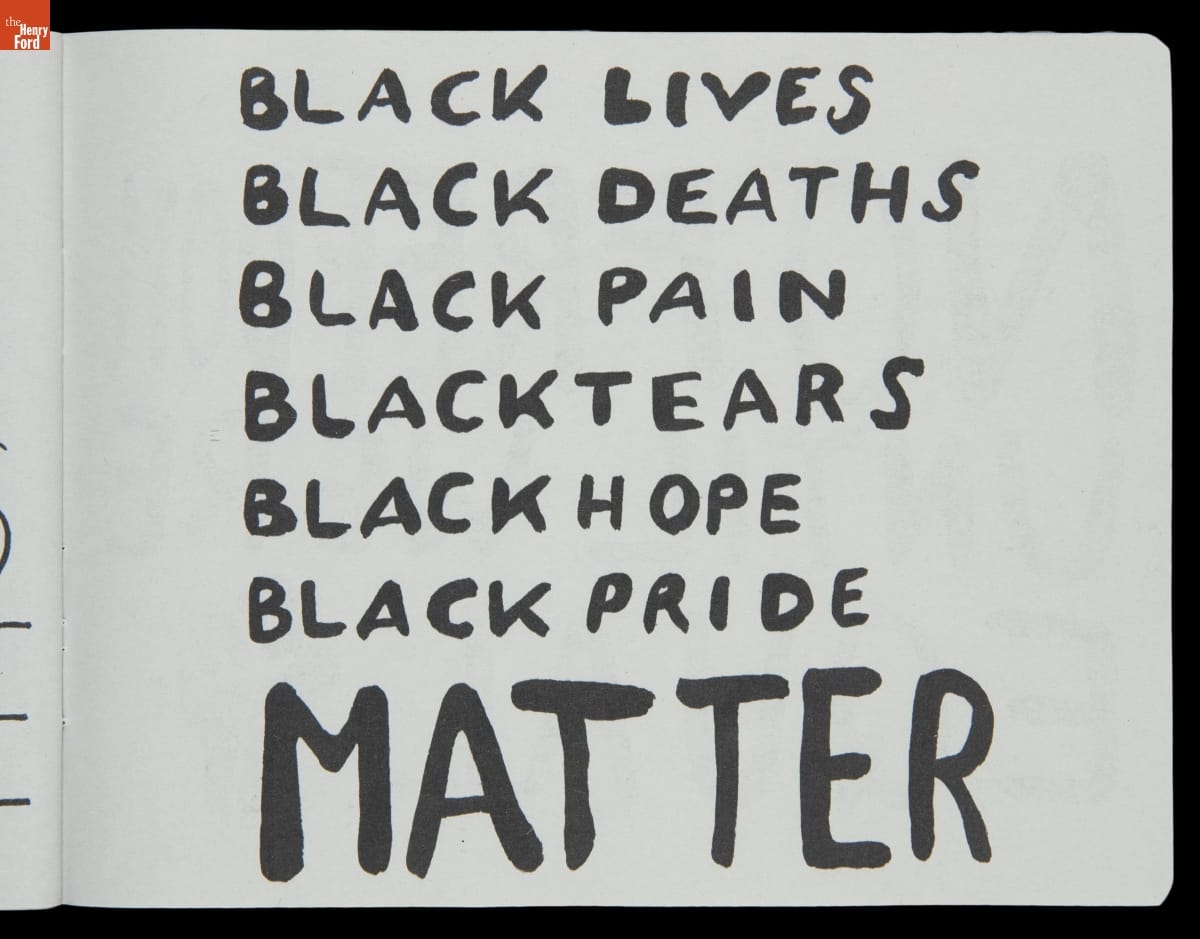 the
Henry
Ford
BLACK LIVES
BLACK DEATHS
BLACK PAIN
BLACK TEARS
BLACK HOPE
BLACK PRIDE
MATTER